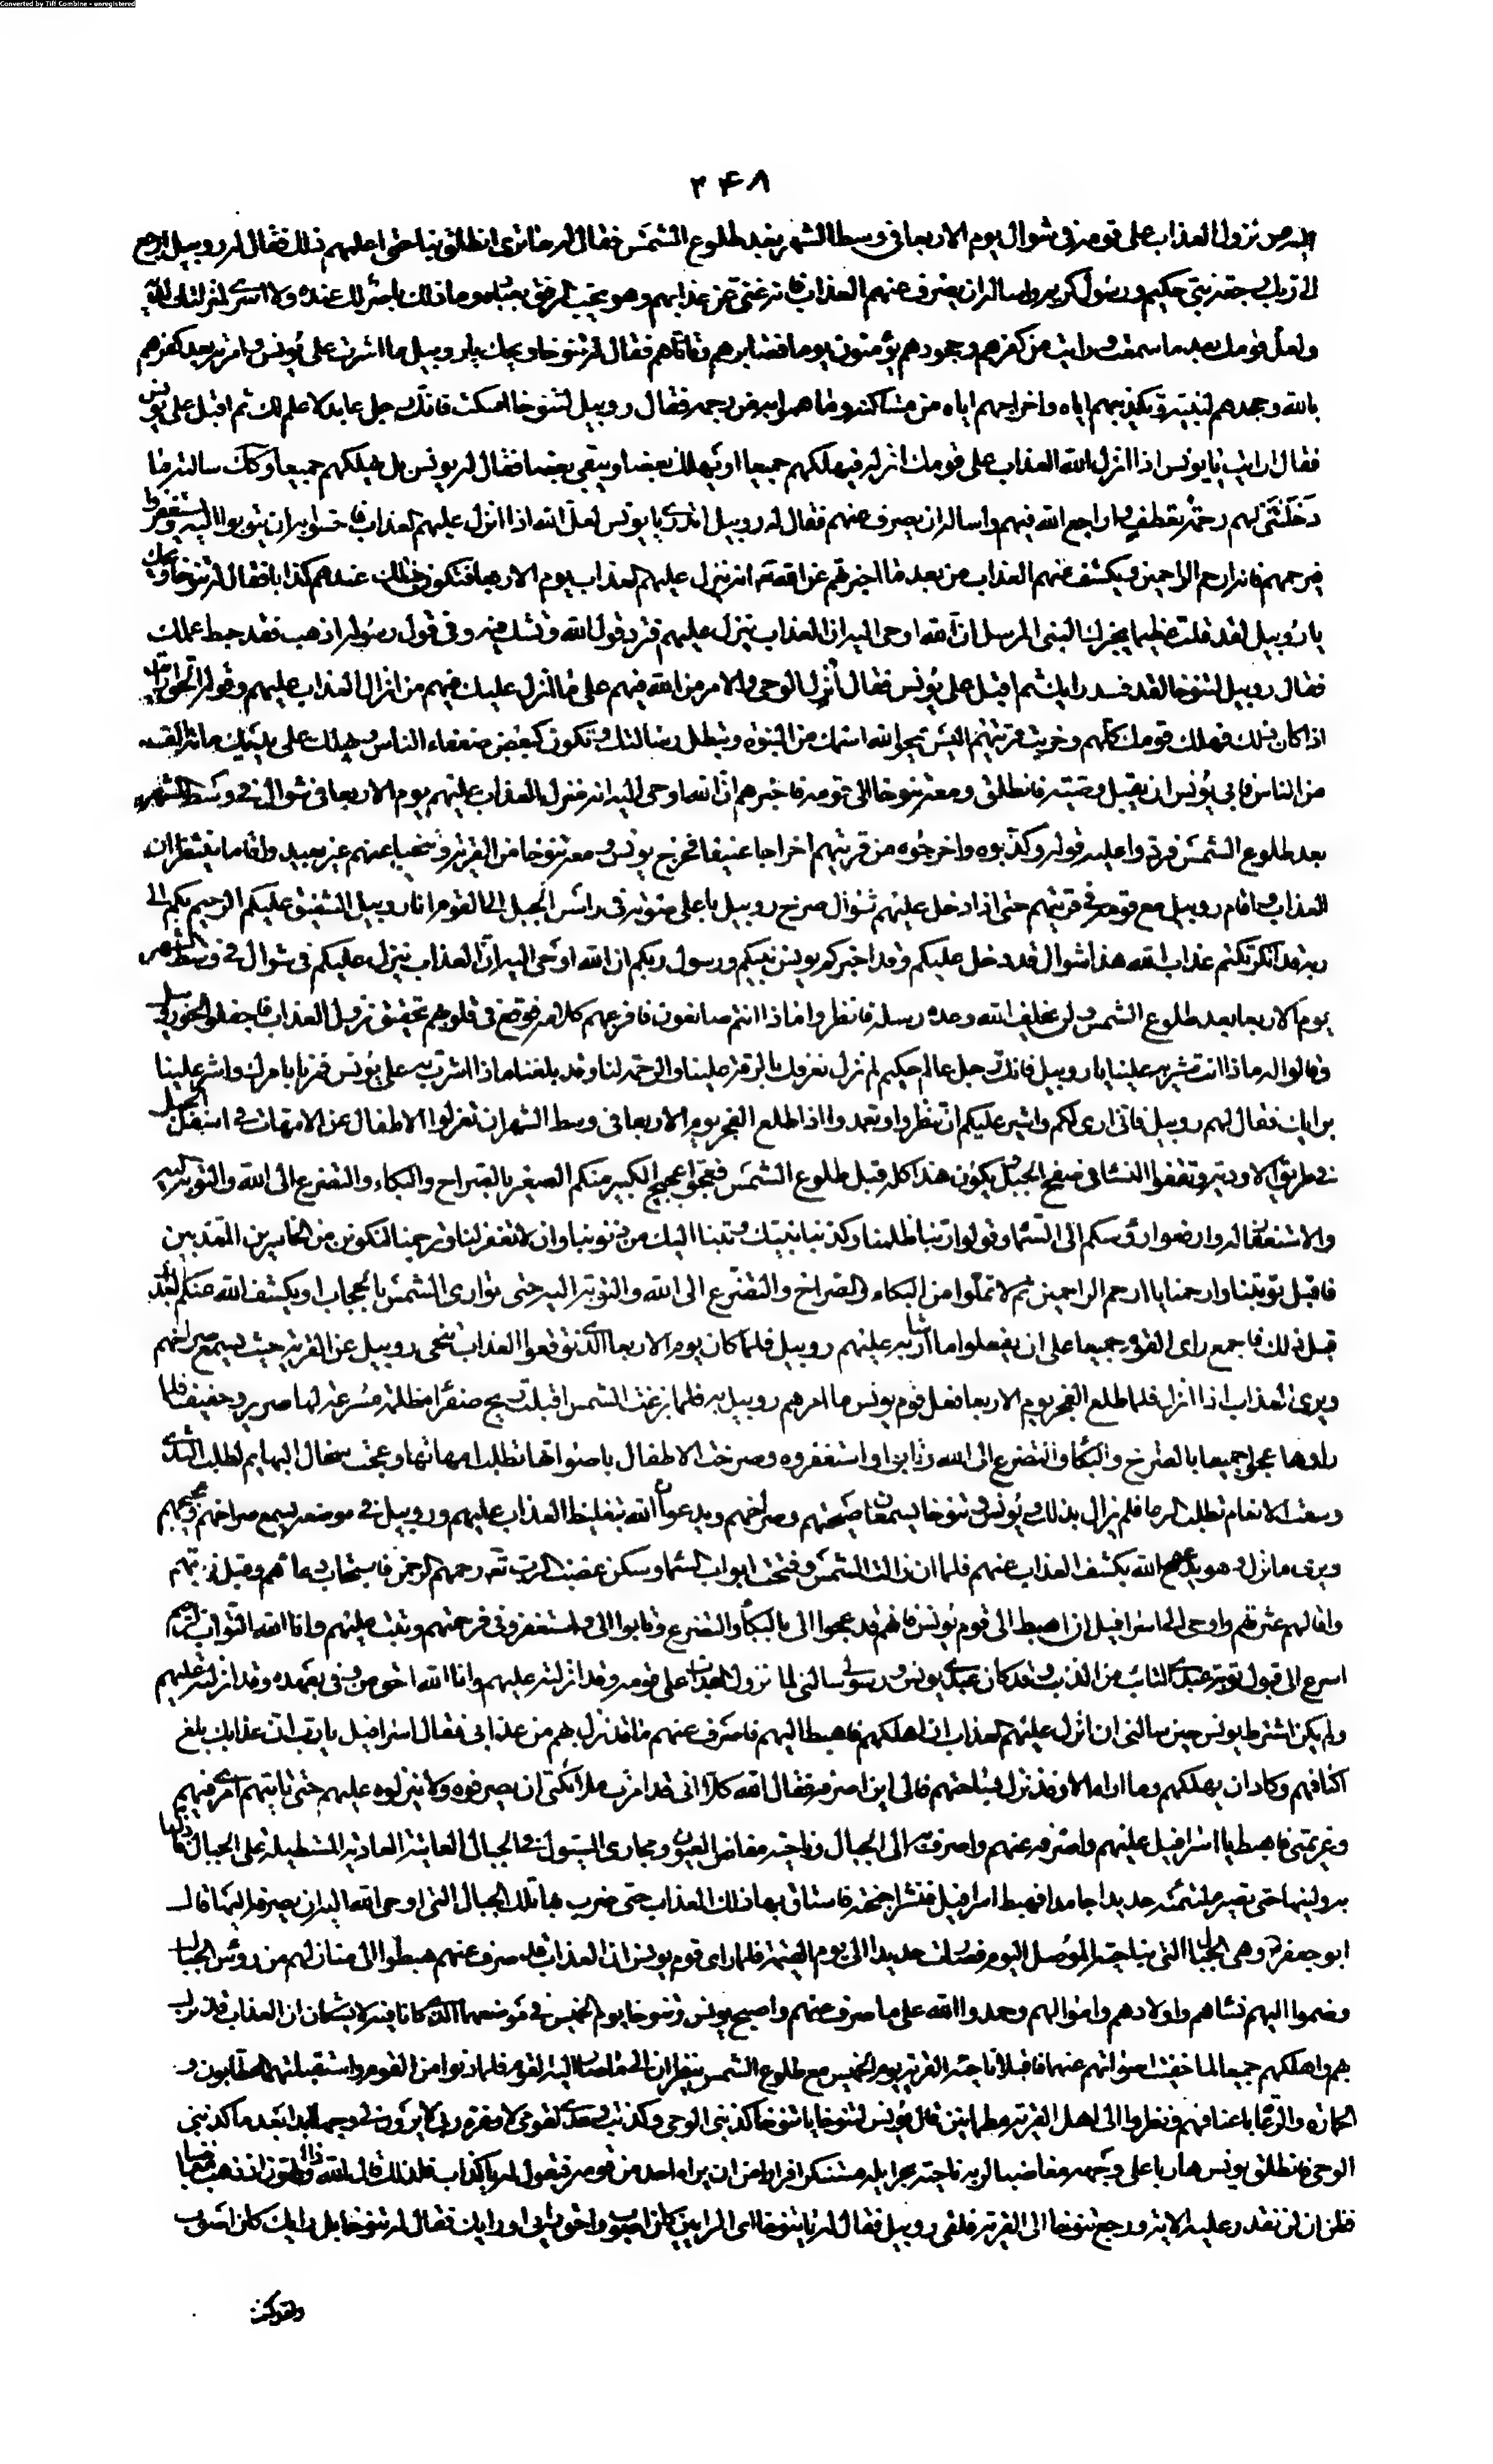 Converted by Tiff Combine - unregistered
٢۴٨
اليه من نزول العذاب على قومه في شوال يوم الاربعا في وسط الشهر بعد طلوع الشمس فقال له ما ترى انطلق بنا حتى اعلمهم ذلك فقال له روبيل ارجع
الى ربك رجعة نبي حكيم ورسول كريم واساله ان يصرف عنهم العذاب فانه غني عن عذابهم وهو يحب الرفق بعباده وما ذلك باضر لك عنده ولا اسرى لمنزلتك لديه
ولعل قومك بعد ما سمعت ورايت من كفرهم وجحودهم يؤمنون يوما فصابرهم وتاناهم فقال له تنوخا ويحك يا روبيل ما اشرت على يونس وامرته به بعد كفرهم
بالله وجحدهم لنبيه وتكذيبهم اياه واخراجهم اياه من مساكنه وما هموا به من رجمه فقال روبيل لتنوخا اسكت فانك رجل عابد لا علم لك ثم اقبل على يونس
فقال ارايت يا يونس اذا انزل الله العذاب على قومك انزله فيهلكهم جميعا او يهلك بعضا ويبقى بعضا فقال له يونس بل يهلكهم جميعا وكك سالته ما
دخلتني لهم رحمة تعطف فاراجع الله فيهم واساله ان يصرف عنهم فقال له روبيل اتدري يا يونس لعل الله اذا انزل عليهم العذاب فاحسوا به ان يتوبوا اليه ويستغفروا
فيرحمهم فانه ارحم الراحمين ويكشف عنهم العذاب من بعد ما اخبرتهم عن الله انه ينزل عليهم العذاب يوم الاربعا فتكون بذلك عندهم كذابا فقال له تنوخا ويحك
يا روبيل لقد قلت عظيما يخبرك النبي المرسل ان الله اوحى اليه ان العذاب ينزل عليهم فترد قول الله وتشك فيه وفي قول رسوله اذهب فقد حبط عملك
فقال روبيل لتنوخا لقد فسد رايك ثم اقبل على يونس فقال انزل الوحي والامر من الله فيهم على ما انزل عليك فيهم من انزال العذاب عليهم وقوله الحق ارايت
اذا كان ذلك فهلك قومك كلهم وخربت قريتهم اليس يمحو الله اسمك من النبوة وتبطل رسالتك وتكون كبعض ضعفاء الناس ويهلك على يديك مائة الف
من الناس فابى يونس ان يقبل وصيته فانطلق ومعه تنوخا الى قومه فاخبرهم ان الله اوحى اليه انه منزل العذاب عليهم يوم الاربعا في شوال في وسط الشهر
بعد طلوع الشمس فردوا عليه قوله وكذبوه واخرجوه من قريتهم اخراجا عنيفا فخرج يونس ومعه تنوخا من القرية وتنحيا عنهم غير بعيد واقاما ينتظران
العذاب واقام روبيل مع قومه في قريتهم حتى اذا دخل عليهم شوال صرخ روبيل باعلى صوته في راس الجبل الى القوم انا روبيل الشفيق عليكم الرحيم بكم الى
ربه قد انكرتم عذاب الله هذا شوال قد دخل عليكم وقد اخبركم يونس نبيكم ورسول ربكم ان الله اوحى اليه ان العذاب ينزل عليكم في شوال في وسط الشهر
يوم الاربعا بعد طلوع الشمس ولن يخلف الله وعده رسله فانظروا ماذا انتم صانعون فافزعهم كلامه فوقع في قلوبهم تحقيق نزول العذاب فاجفلوا نحو روبيل
وقالوا له ماذا انت مشير به علينا يا روبيل فانك رجل عالم حكيم لم نزل نعرفك بالرقة علينا والرحمة لنا وقد بلغنا ما ذا اشرت به على يونس فمرنا بامرك واشر علينا
برايك فقال لهم روبيل فاني ارى لكم واشير عليكم ان تنظروا وتعمدوا اذا طلع الفجر يوم الاربعا في وسط الشهر ان تعزلوا الاطفال عن الامهات في اسفل الجبل
في طريق الاودية وتقفوا النساء في سفح الجبل ويكون هذا كله قبل طلوع الشمس فعجوا عجيج الكبير منكم الصغير بالصراخ والبكاء والتضرع الى الله والتوبة اليه
والاستغفار له وارفعوا رؤسكم الى السماء وقولوا ربنا ظلمنا وكذبنا نبيك وتبنا اليك من ذنوبنا وان لا تغفر لنا وترحمنا لنكونن من الخاسرين المعذبين
فاقبل توبتنا وارحمنا يا ارحم الراحمين ثم لا تملوا من البكاء والصراخ والتضرع الى الله والتوبة اليه حتى توارى الشمس بالحجاب او يكشف الله عنكم العذاب
قبل ذلك فاجمع راى القوم جميعا على ان يفعلوا ما اشار به عليهم روبيل فلما كان يوم الاربعا الذي توقعوا العذاب تنحى روبيل عن القرية حيث يسمع صراخهم
ويرى العذاب اذا انزل فلما طلع الفجر يوم الاربعا فعل قوم يونس ما امرهم روبيل به فلما بزغت الشمس اقبلت ريح صفراء مظلمة مسرعة لها صرير وحفيف فلما
راوها عجوا جميعا بالصراخ والبكاء والتضرع الى الله وتابوا واستغفروه وصرخت الاطفال باصواتها تطلب امهاتها وعجت سخال البهايم تطلب الثدي
وسعت الانعام تطلب الرعا فلم يزال بذلك ويونس وتنوخا يسمعان صيحتهم وصراخهم ويدعوان الله بتغليظ العذاب عليهم وروبيل في موضعه يسمع صراخهم وعجيجهم
ويرى ما نزل وهو يدعو الله بكشف العذاب عنهم فلما ان زالت الشمس وفتحت ابواب السماء وسكن غضب الرب تعـ رحمهم الرحمن فاستجاب دعائهم وقبل توبتهم
واقالهم عثرتهم واوحى الى اسرافيل ان اهبط الى قوم يونس فانهم قد عجوا الي بالبكاء والتضرع وتابوا الي واستغفروني فرحمتهم وتبت عليهم وانا الله التواب الرحيم
اسرع الى قبول توبة عبدي التائب من الذنب وقد كان عبدي يونس ورسولي سالني نزول العذاب على قومه وقد انزلته عليهم وانا الله احق من وفى بعهده وقد انزلته عليهم
ولم يكن اشترط يونس حين سالني ان انزل عليهم العذاب ان اهلكهم فاهبط اليهم فاصرف عنهم ما قد نزل بهم من عذابي فقال اسرافيل يا رب ان عذابك بلغ
اكتافهم وكاد ان يهلكهم وما اراه الا وقد نزل بساحتهم فالى اين اصرفه فقال الله كلا اني قد امرت ملائكتي ان يصرفوه ولا ينزلوه عليهم حتى ياتيهم امري فيهم
وعزيمتي فاهبط يا اسرافيل عليهم واصرفه عنهم واصرفه الى الجبال وناحية مفاض العيون ومجارى السيول في الجبال العاتية العادية المستطيلة على الجبال فاذلها
به ولينها حتى تصير ملتئمة حديدا جامدا فهبط اسرافيل فنشر اجنحته فاستاق بها ذلك العذاب حتى ضرب بها تلك الجبال التي اوحى الله اليه ان يصرفه اليها قال
ابو جعفر وهي الجبال التي بناحية الموصل اليوم فصارت حديدا الى يوم القيمة فلما راى قوم يونس ان العذاب قد صرف عنهم هبطوا الى منازلهم من رؤس الجبال
وضموا اليهم نساءهم واولادهم واموالهم وحمدوا الله على ما صرف عنهم واصبح يونس وتنوخا يوم الخميس في موضعهما الذي كانا فيه لا يشكان ان العذاب قد نزل
بهم واهلكهم جميعا لما خفيت اصواتهم عنهما فاقبلا ناحية القرية يوم الخميس مع طلوع الشمس ينظران الى ما صار اليه القوم فلما دنوا من القوم واستقبلتهما الحطابون و
الحماة والرعاة باعناقهم ونظروا الى اهل القرية مطمانين قال يونس لتنوخا يا تنوخا كذبني الوحي وكذبت وعدي لقومي لا وعزة ربي لا يرون لي وجها ابدا بعد ما كذبني
الوحي فانطلق يونس هاربا على وجهه مغاضبا لربه ناحية بحر ايلة مستنكرا فرارا من ان يراه احد من قومه فيقول له يا كذاب فلذلك قال الله وذا النون اذ ذهب مغاضبا
فظن ان لن نقدر عليه الاية ورجع تنوخا الى القرية فلقى روبيل فقال له يا تنوخا اي الرايين كان اصوب واحق رايي او رايك فقال له تنوخا بل رايك كان اصوب
ولقد كنت